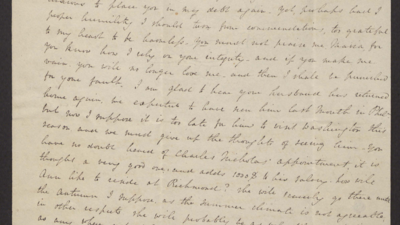 to place you in my debt again. yet perhaps have I
proper humility I should two from commendations, too grateful
to my heart to be harmless. you must not praise me Maria for
you know how I rely on your integrity, and if you make me
vain you will no longer love me. and then I shall be punished
for your fault. I am glad to hear your husband has returned
home again, we expected to have seen him last month in
but now I suppose it is too late for him to visit Washington this
season and we must give up the thoughts of seeing him. You
have no doubt heard of Charles Nicholas' appointment, it is
thought a very good one and adds to his salary. how will
Ann like to reside at Richmond? she will scarcely go there until
the autumn I suppose, as the summer climate is not agreeable
in other respects she will probably
as any where